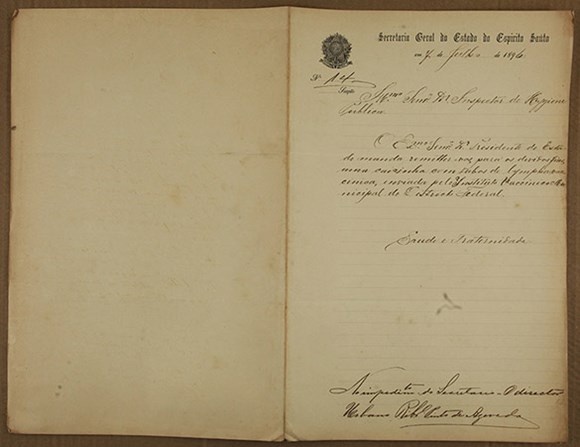 Secretaria Geral do Estado do Espirito Santo
em 7 de Julho de 1896.
Nº 14
Secção
Illmo Senr Dr Inspector de Hygiene
Publica.
O Exmo Senr Dr Presidente do Esta-
do manda remetter-vos para os devidos fins,
uma caixinha com tubos de lympha vac-
cinica, enviada pelo Instituto Vaccinico Mu-
nicipal do Districto Federal.
Saude e Fraternidade
No impedimto do Secretario - O director
Urbano Pinto de Azevedo